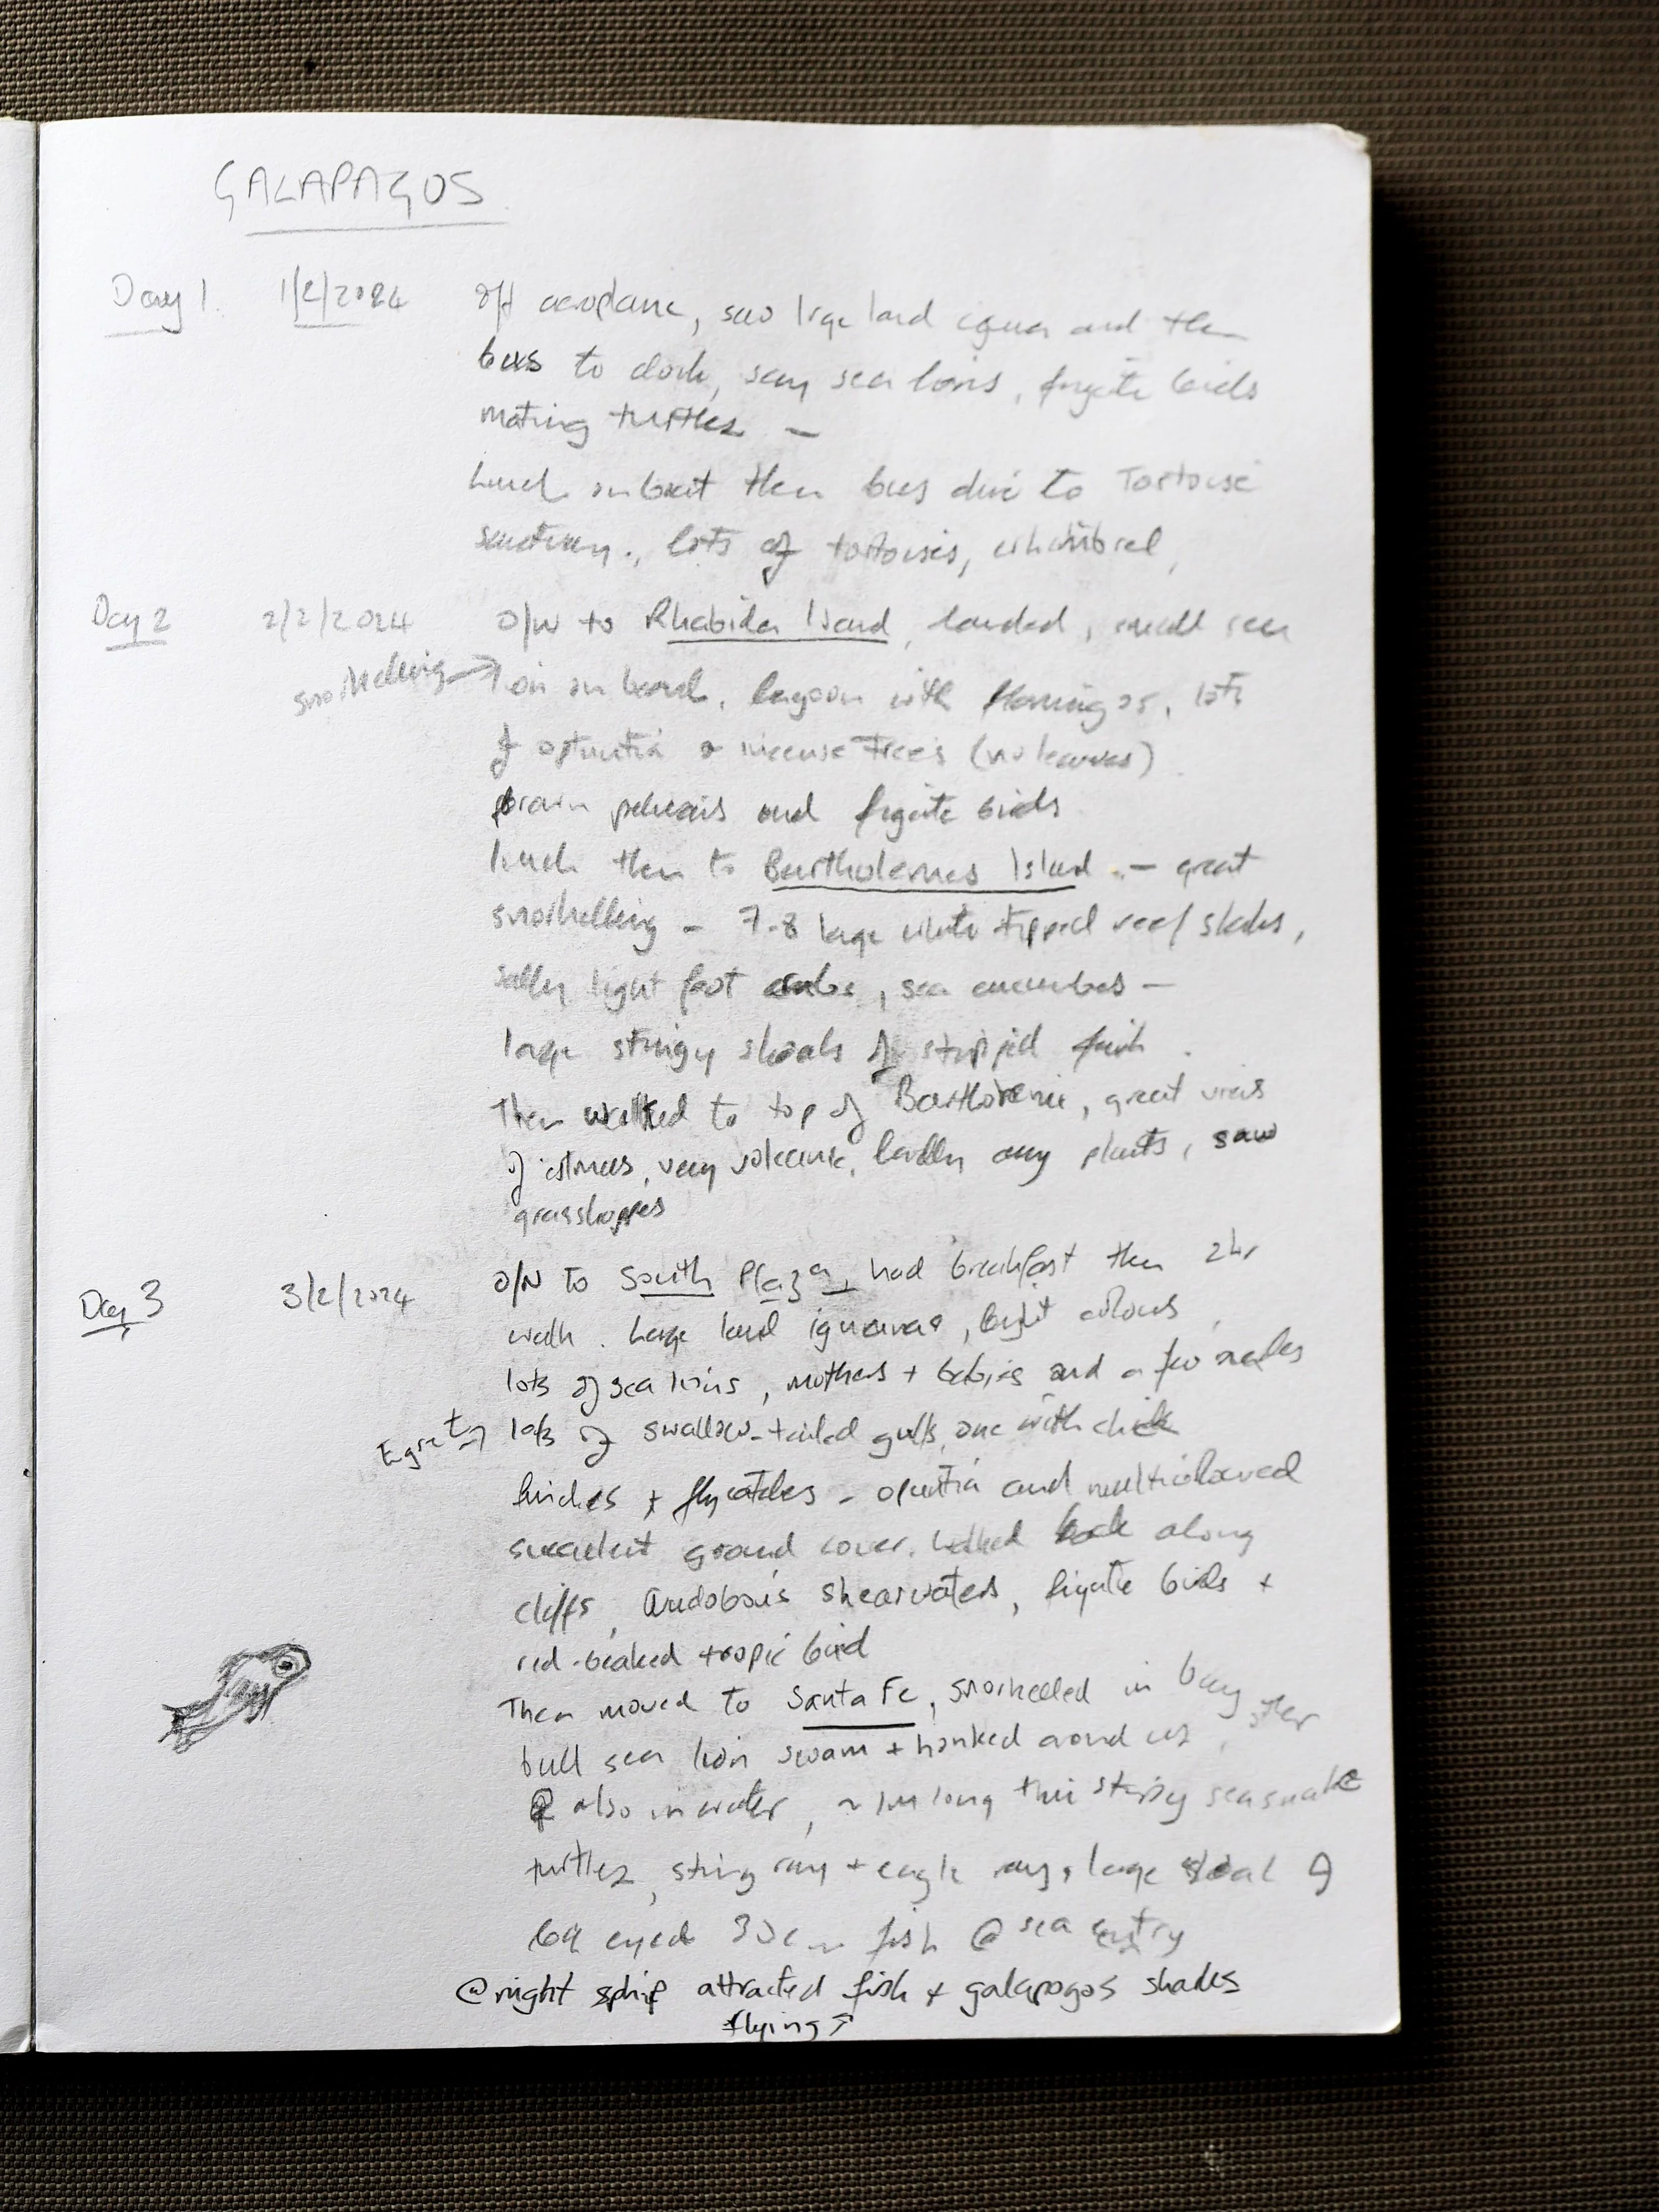 GALAPAGOS
Day 1 1/2/2024 off aeroplane, saw large land iguana and then
bus to dock, saw sea lions, frigate birds
mating turtles –
Lunch on boat then bus drive to Tortoise
sanctuary., lots of tortoises, whimbrel,
Day 2 2/2/2024 O/N to Rhabida Island, landed, small sea
snorkelling → lion on beach, lagoon with flamingos, lots
of opuntia + incense trees (no leaves).
brown pelicans and frigate birds
lunch then to Bartholemes Island. – great
snorkelling – 7-8 large white tipped reef sharks,
sally light foot crabs, sea cucumbers –
large stringy shoals of stripped fish.
Then walked to top of Bartholeme, great views
of isthmus, very volcanic, hardly any plants, saw
grasshoppers
Day 3 3/2/2024 O/N to South Plaza, had breakfast then 2hr
walk. Large land iguanas, bright colours,
lots of sea lions, mothers + babies and a few males
Egret → lots of swallow-tailed gulls, one with chick
finches + flycatchers – opuntia and multicoloured
succulent ground cover. Walked back along
cliffs, Audobon's shearwaters, frigate birds +
red-beaked tropic bird
Then moved to Santa Fe, snorkelled in bay
bull sea lion swam + honked around us,
also in water, ~1m long thin stripy seasnake
turtles, sting ray + eagle rays, large shoal of
big eyed 30cm fish @ sea entry
@night ship attracted fish + galapagos sharks
flying ↗